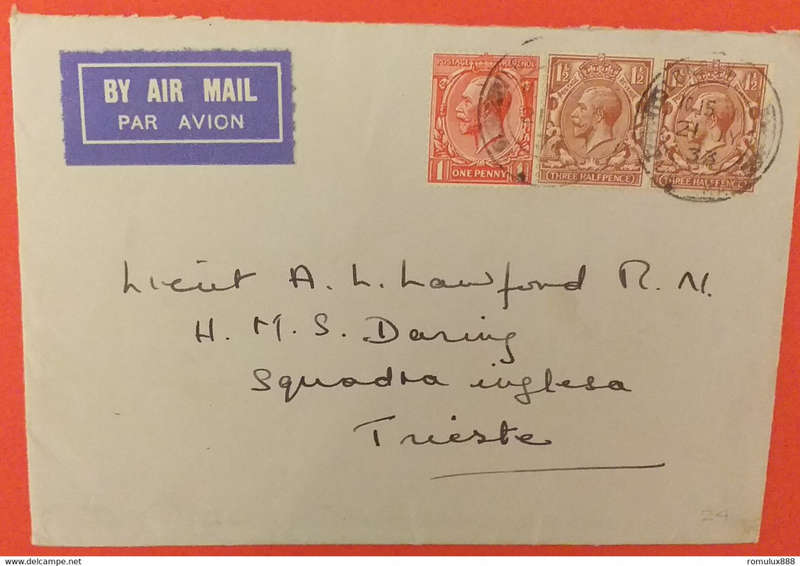 BY AIR MAIL
PAR AVION
POSTAGE
1 ONE PENNY 1
1½ 1½
THREE HALFPENCE
1½
THREE HALFPENCE
15
21
34
Lieut A. L. Lawford R. N.
H. M. S. Daring
Squadra inglesa
Trieste
24
delcampe.net
romulux888